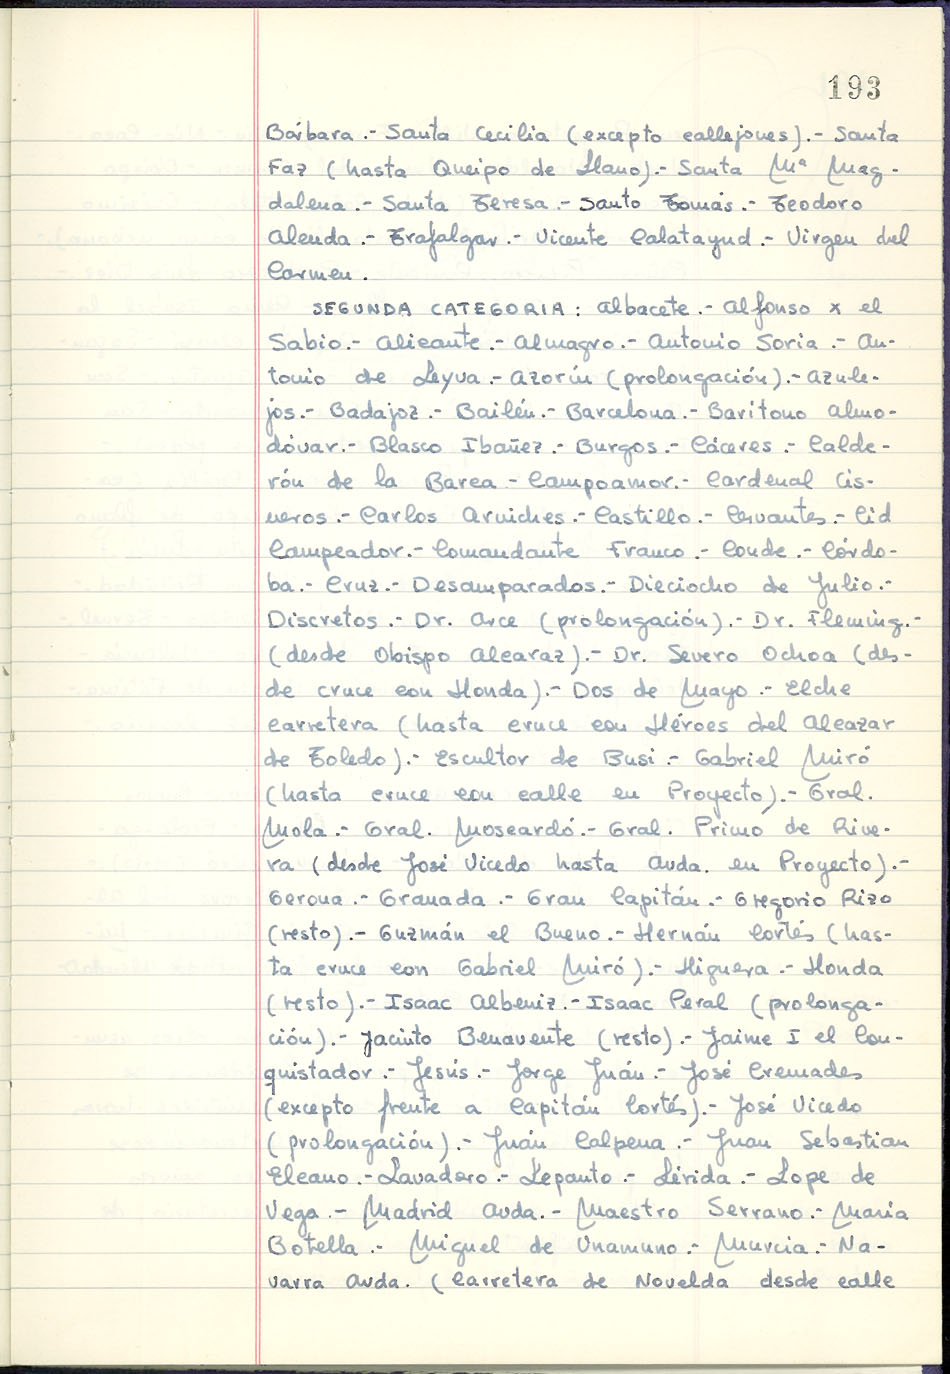 193
Bárbara.- Santa Cecilia (excepto callejones).- Santa
Faz (hasta Queipo de Llano).- Santa Mª Mag-
dalena.- Santa Teresa.- Santo Tomás.- Teodoro
Alenda.- Trafalgar.- Vicente Calatayud.- Virgen del
Carmen.
SEGUNDA CATEGORIA: Albacete.- Alfonso X el
Sabio.- Alicante.- Almagro.- Antonio Soria.- An-
tonio de Leyva.- Azorín (prolongación).- Azule-
jos.- Badajoz.- Bailén.- Barcelona.- Barítono Almo-
dóvar.- Blasco Ibañez.- Burgos.- Cáceres.- Calde-
rón de la Barca.- Campoamor.- Cardenal Cis-
neros.- Carlos Arniches.- Castillo.- Cervantes.- Cid
Campeador.- Comandante Franco.- Conde.- Córdo-
ba.- Cruz.- Desamparados.- Dieciocho de Julio.-
Discretos.- Dr. Arce (prolongación).- Dr. Fleming.-
(desde Obispo Alcaraz).- Dr. Severo Ochoa (des-
de cruce con Honda).- Dos de Mayo.- Elche
carretera (hasta cruce con Héroes del Alcazar
de Toledo).- Escultor de Busi.- Gabriel Miró
(hasta cruce con calle en Proyecto).- Gral.
Mola.- Gral. Moscardó.- Gral. Primo de Rive-
ra (desde José Vicedo hasta Avda. en Proyecto).-
Gerona.- Granada.- Gran Capitán.- Gregorio Rizo
(resto).- Guzmán el Bueno.- Hernán Cortés (has-
ta cruce con Gabriel Miró).- Higuera.- Honda
(resto).- Isaac Albeniz.- Isaac Peral (prolonga-
ción).- Jacinto Benavente (resto).- Jaime I el Con-
quistador.- Jesús.- Jorge Juán.- José Cremades
(excepto frente a Capitán Cortés).- José Vicedo
(prolongación).- Juán Calpena.- Juan Sebastian
Elcano.- Lavadero.- Lepanto.- Lérida.- Lope de
Vega.- Madrid Avda.- Maestro Serrano.- María
Botella.- Miguel de Unamuno.- Murcia.- Na-
varra Avda. (Carretera de Novelda desde calle